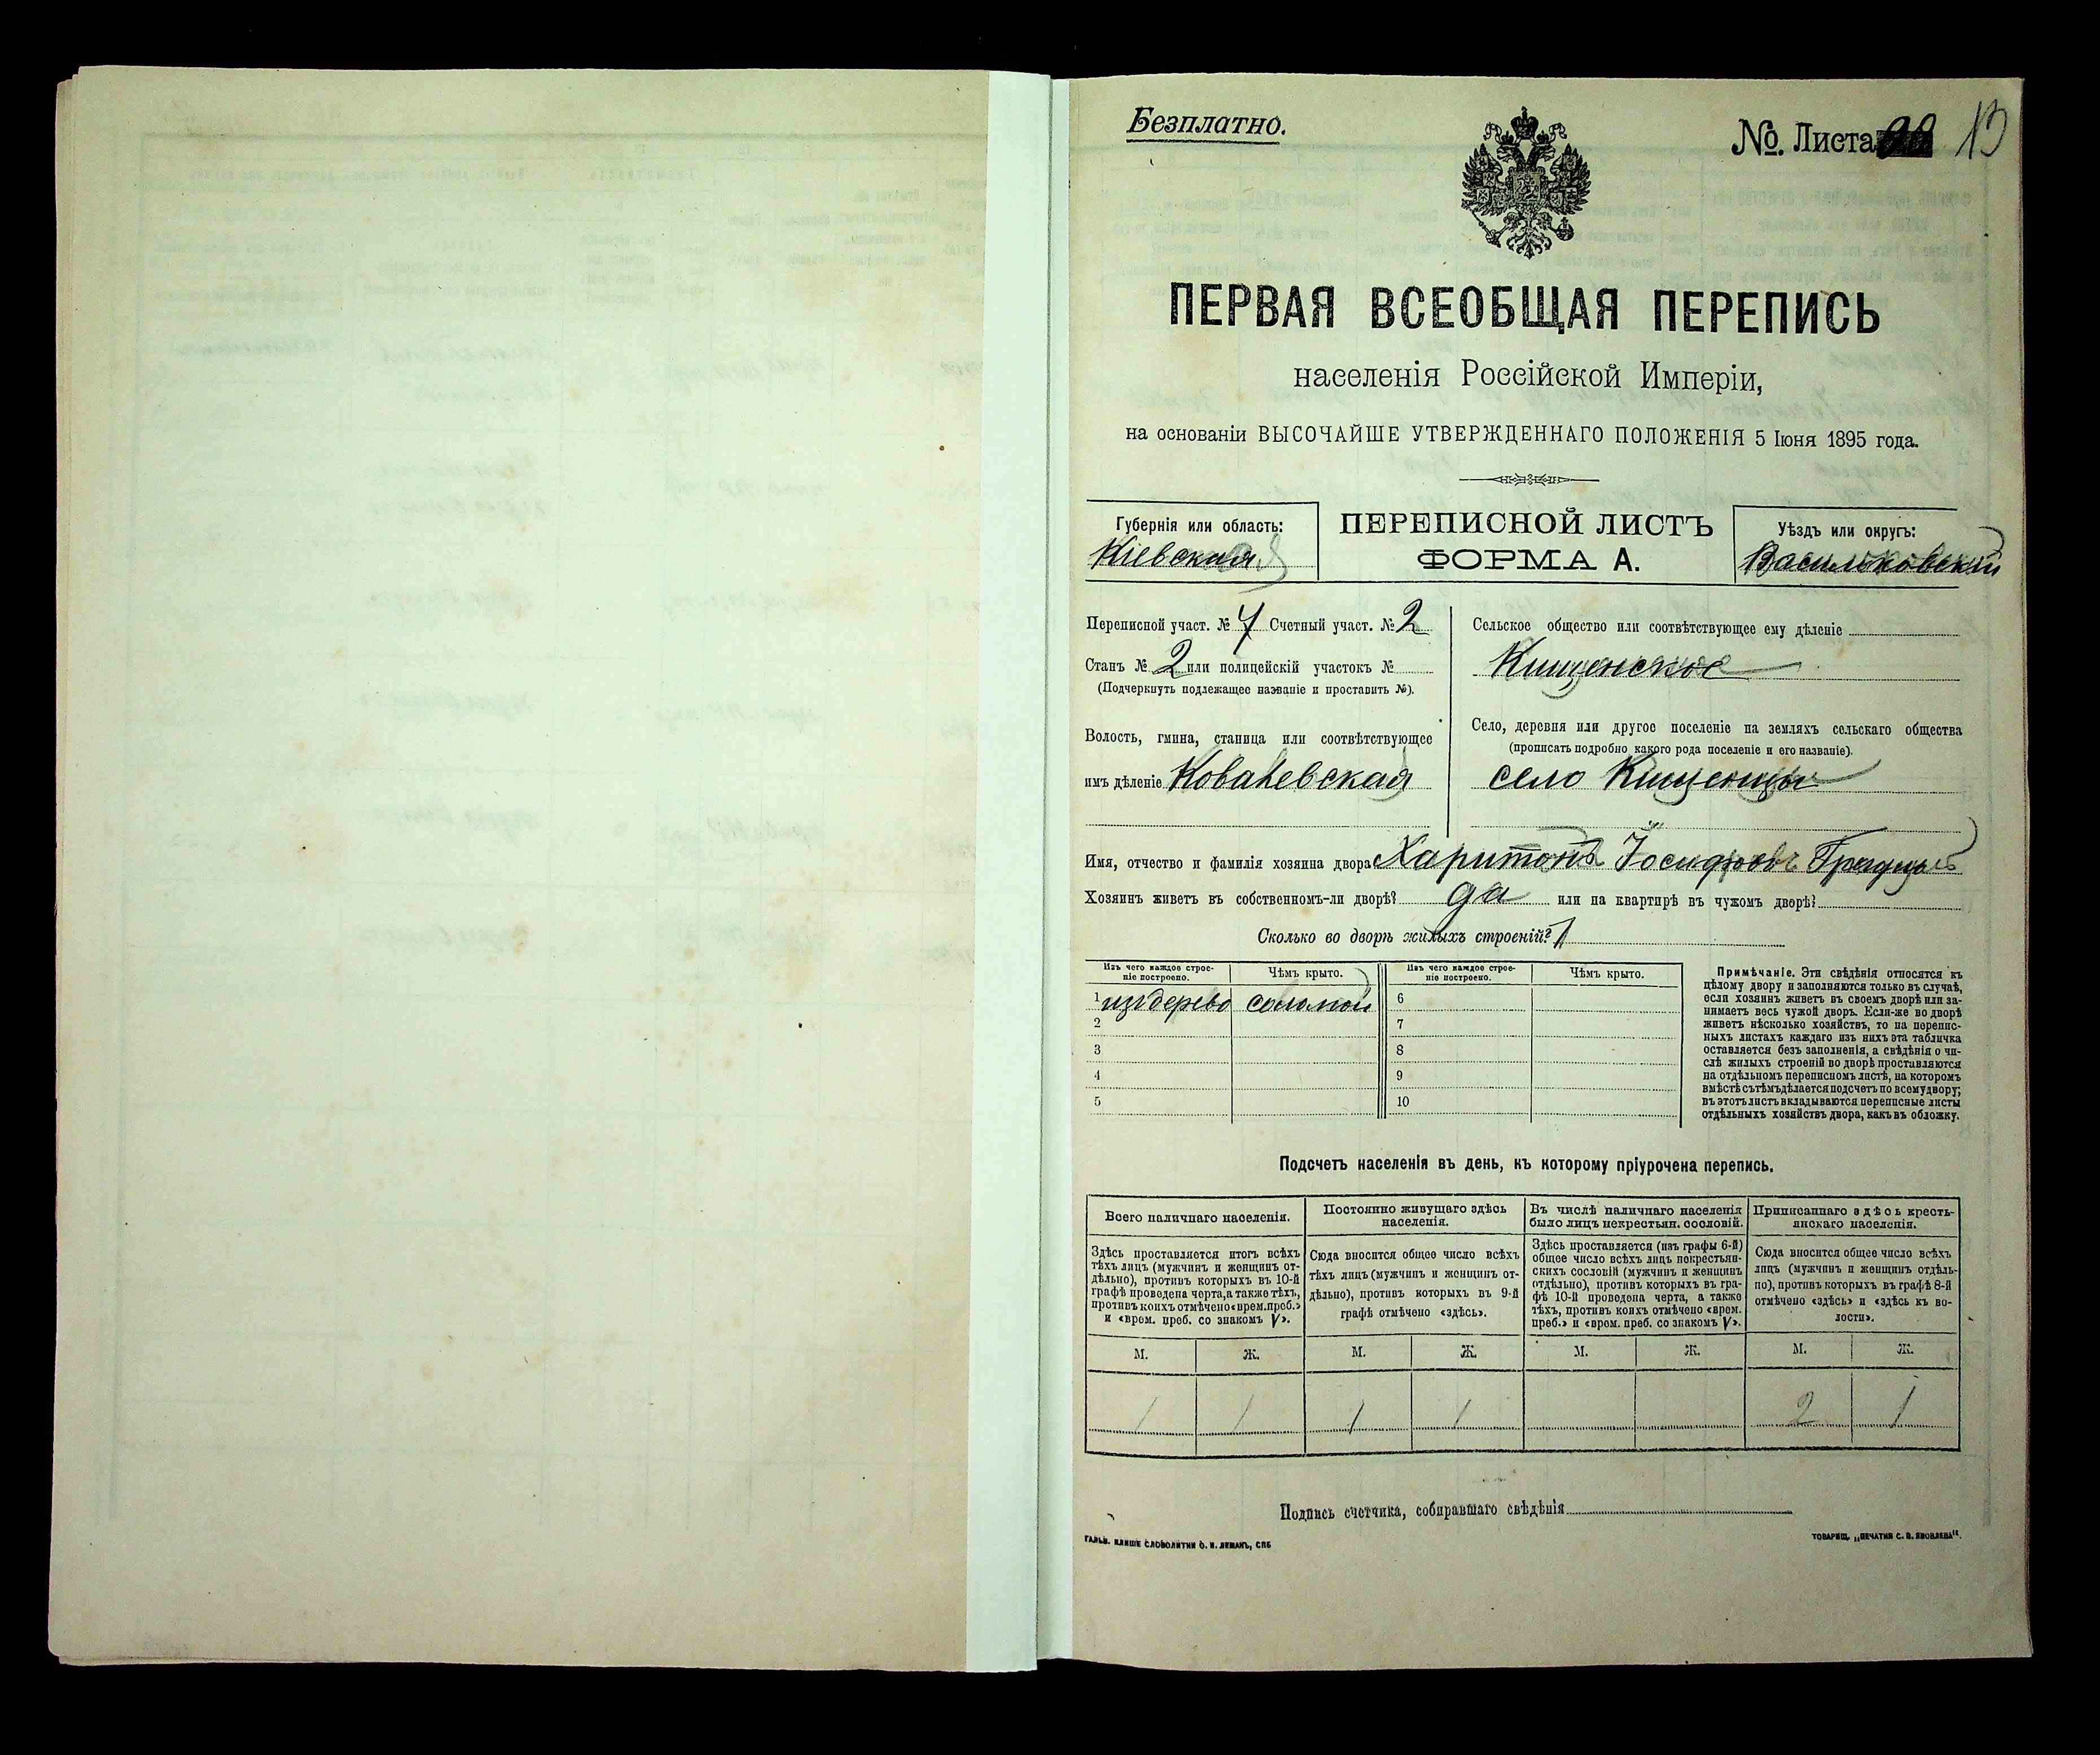 Безплатно.
№. Листа
13
ПЕРВАЯ ВСЕОБЩАЯ ПЕРЕПИСЬ
населенія Россійской Имперіи,
на основаніи ВЫСОЧАЙШЕ УТВЕРЖДЕННАГО ПОЛОЖЕНІЯ 5 Іюня 1895 года.
Губернія или область:
Кіевская
ПЕРЕПИСНОЙ ЛИСТЪ
ФОРМА А.
Уѣздъ или округъ:
Васильковскій
Переписной участ. № 4 Счетный участ. № 2
Станъ № 2 или полицейскій участокъ №
(Подчеркнуть подлежащее названіе и проставить №).
Волость, гмина, станица или соотвѣтствующее
имъ дѣленіе Ковалевская
Сельское общество или соотвѣтствующее ему дѣленіе
Кищенское
Село, деревня или другое поселеніе на земляхъ сельскаго общества
(прописать подробно какого рода поселеніе и его названіе).
село Кищенцы
Имя, отчество и фамилія хозяина двора Харитонъ Іосифовъ
Хозяинъ живетъ въ собственномъ-ли дворѣ? да или на квартирѣ въ чужомъ дворѣ?
Сколько во дворѣ жилыхъ строеній? 1
Изъ чего каждое строе-
ніе построено.
Чѣмъ крыто.
Изъ чего каждое строе-
ніе построено.
Чѣмъ крыто.
1 изъ дерева соломой 6
2 7
3 8
4 9
5 10
Примѣчаніе. Эти свѣдѣнія относятся къ
цѣлому двору и заполняются только въ случаѣ,
если хозяинъ живетъ въ своемъ дворѣ или за-
нимаетъ весь чужой дворъ. Если-же во дворѣ
живетъ нѣсколько хозяйствъ, то на перепис-
ныхъ листахъ каждаго изъ нихъ эта табличка
оставляется безъ заполненія, а свѣдѣнія о чи-
слѣ жилыхъ строеній во дворѣ проставляются
на отдѣльномъ переписномъ листѣ, на которомъ
вмѣстѣ съ тѣмъ дѣлается подсчетъ по всему двору;
въ этотъ листъ вкладываются переписные листы
отдѣльныхъ хозяйствъ двора, какъ въ обложку.
Подсчетъ населенія въ день, къ которому пріурочена перепись.
Всего наличнаго населенія.
Здѣсь проставляется итогъ всѣхъ
тѣхъ лицъ (мужчинъ и женщинъ от-
дѣльно), противъ которыхъ въ 10-й
графѣ проведена черта, а также тѣхъ,
противъ коихъ отмѣчено «врем. преб.»
и «врем. преб. со знакомъ V».
Постоянно живущаго здѣсь
населенія.
Сюда вносится общее число всѣхъ
тѣхъ лицъ (мужчинъ и женщинъ от-
дѣльно), противъ которыхъ въ 9-й
графѣ отмѣчено «здѣсь».
Въ числѣ наличнаго населенія
было лицъ некрестьян. сословій.
Здѣсь проставляется (изъ графы 6-й)
общее число всѣхъ лицъ некрестьян-
скихъ сословій (мужчинъ и женщинъ
отдѣльно), противъ которыхъ въ гра-
фѣ 10-й проведена черта, а также
тѣхъ, противъ коихъ отмѣчено «врем.
преб.» и «врем. преб. со знакомъ V».
Приписаннаго здѣсь кресть-
янскаго населенія.
Сюда вносится общее число всѣхъ
лицъ (мужчинъ и женщинъ отдѣль-
но), противъ которыхъ въ графѣ 8-й
отмѣчено «здѣсь» и «здѣсь къ во-
лости».
М. Ж. М. Ж. М. Ж. М. Ж.
1 1 1 1 2 1
Подпись счетчика, собиравшаго свѣдѣнія
ГАЛЬВ. КЛИШЕ СЛОВОЛИТНИ О. И. ЛЕМАНЪ, СПБ
ТОВАРИЩ. „ПЕЧАТНЯ С. П. ЯКОВЛЕВА".